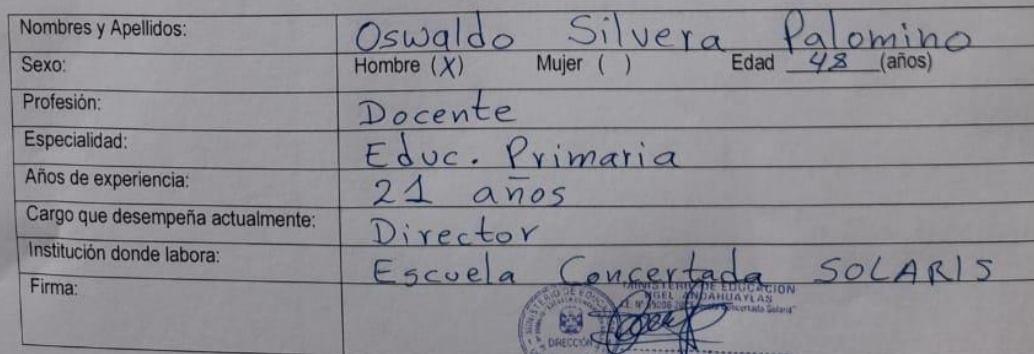 Nombres y Apellidos: Oswaldo Silvera Palomino
Sexo: Hombre (X) Mujer ( ) Edad 48 (años)
Profesión: Docente
Especialidad: Educ. Primaria
Años de experiencia: 21 años
Cargo que desempeña actualmente: Director
Institución donde labora: Escuela Concertada SOLARIS
Firma:
MINISTERIO DE EDUCACION
UGEL ANDAHUAYLAS
Concertada Solaris"
DIRECCIÓN